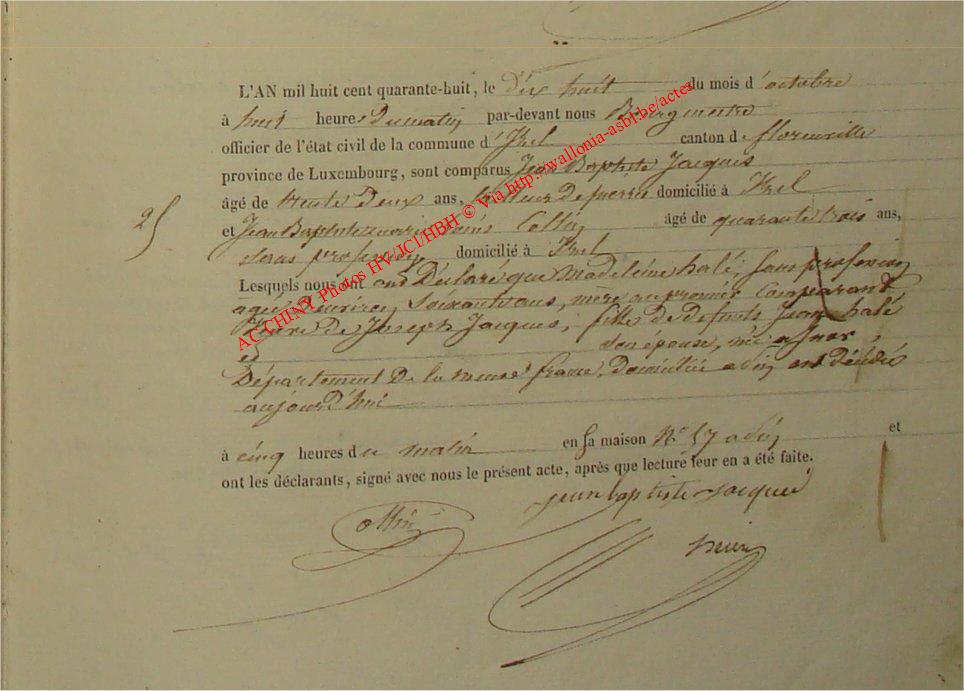 L'AN mil huit cent quarante-huit, le dix huit du mois d'octobre
à huit heures du matin par-devant nous Bourgmestre
officier de l'état civil de la commune d'Izel canton de florenville
province de Luxembourg, sont comparus Jean Baptiste Jacques
âgé de trente deux ans, domicilié à Izel
25
et Jean Baptiste Collin âgé de quarante trois ans,
sans profession domicilié à Izel
Lesquels nous ont ont Déclaré que Madeleine halé, sans profession
âgée d'environ soixante ans, mère au premier Comparant
de Joseph Jacques, fille de defunts Jean halé
et son épouse, née a
Département De la meuse france, domiciliée adit est décédée
aujourd'hui
à cinq heures du matin en sa maison N° 57 adit et
ont les déclarants, signé avec nous le présent acte, après que lecture leur en a été faite.
jean baptiste Jacques
AC CHINY Photos HV/JCl/HBH © Via http://wallonia-asbl.be/actes